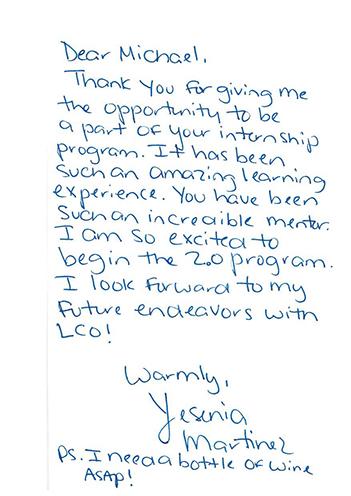 Dear Michael,
Thank you for giving me
the opportunity to be
a part of your internship
program. It has been
such an amazing learning
experience. You have been
such an incredible mentor.
I am so excited to
begin the 2.0 program.
I look forward to my
future endeavors with
LCO!
Warmly,
Yesenia
Martinez
PS. I need a bottle of wine
ASAP!